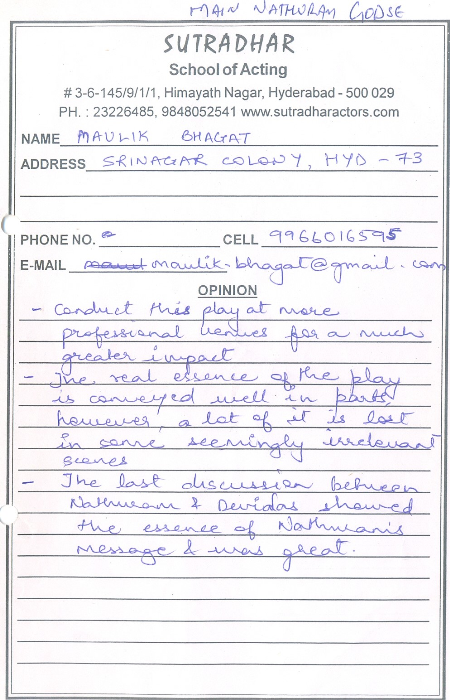 MAIN NATHURAM GODSE
SUTRADHAR
School of Acting
# 3-6-145/9/1/1, Himayath Nagar, Hyderabad - 500 029
PH. : 23226485, 9848052541 www.sutradharactors.com
NAME MAULIK BHAGAT
ADDRESS SRINAGAR COLONY, HYD - 73
PHONE NO. CELL 9966016595
E-MAIL maulik.bhagat@gmail.com
OPINION
- Conduct this play at more
professional venues for a much
greater impact
- The real essence of the play
is conveyed well in parts,
however, a lot of it is lost
in some seemingly irrelevant
scenes
- The last discussion between
Nathuram & Devidas showed
the essence of Nathuram's
message & was great.